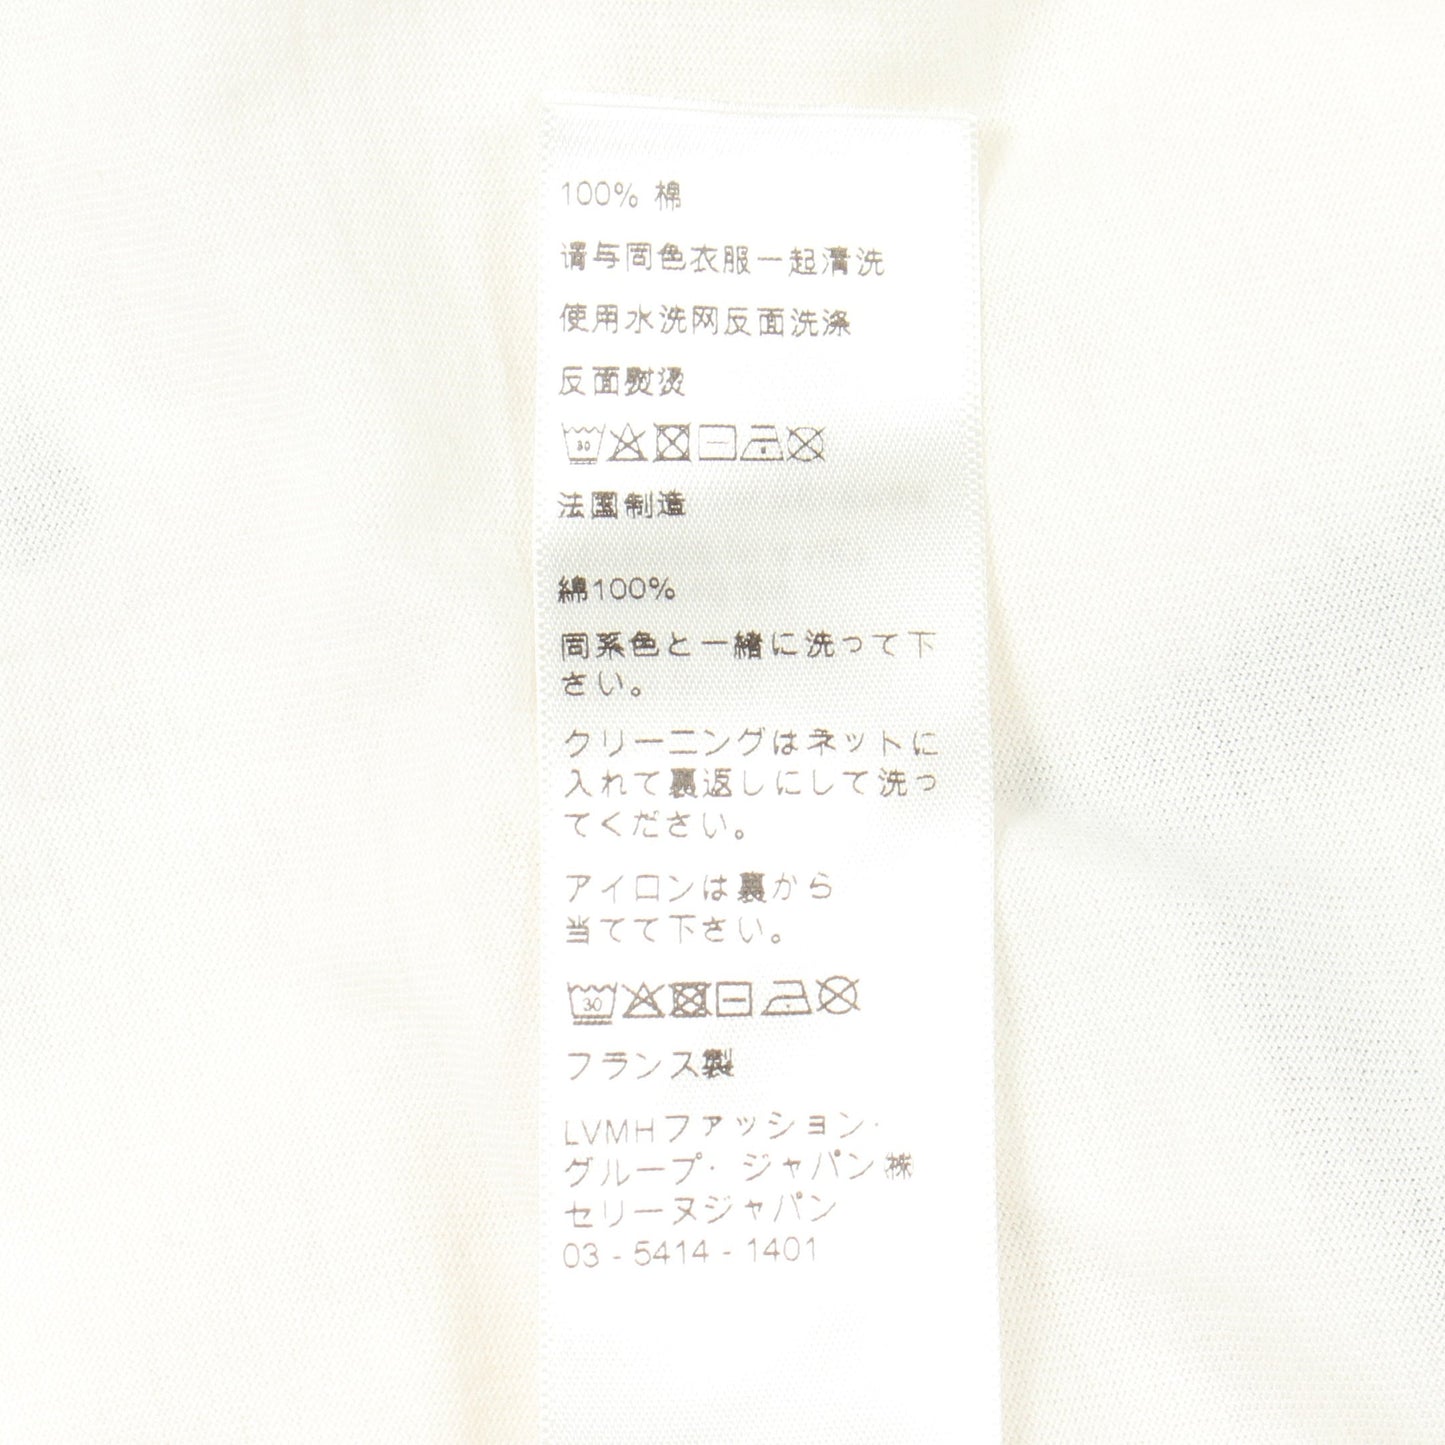 100% 棉
请与同色衣服一起清洗
使用水洗网反面洗涤
反面熨烫
30
法国制造
綿100%
同系色と一緒に洗って下
さい。
クリーニングはネットに
入れて裏返しにして洗っ
てください。
アイロンは裏から
当てて下さい。
30
フランス製
LVMHファッション·
グループ· ジャパン㈱
セリーヌジャパン
03 - 5414 - 1401